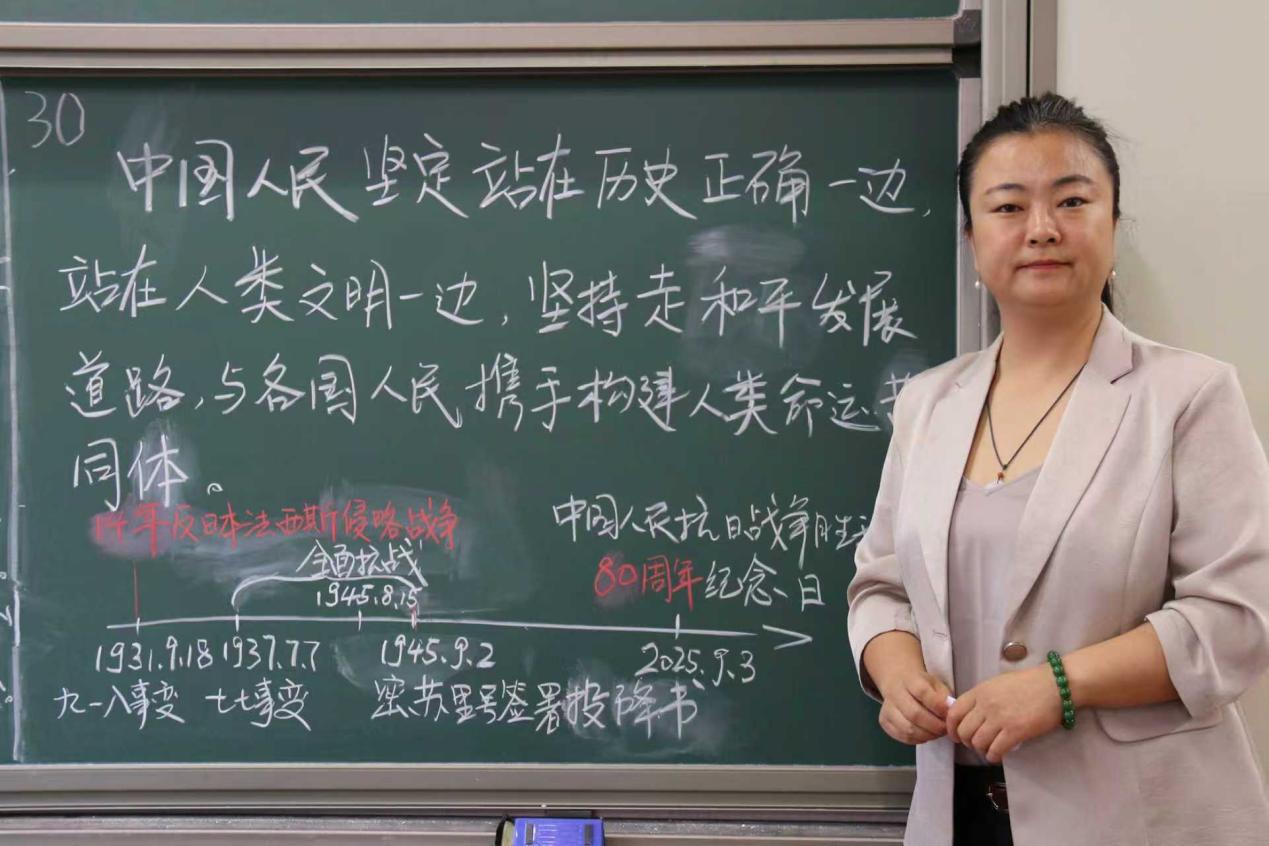 30
中国人民坚定站在历史正确一边,
站在人类文明一边,坚持走和平发展
道路,与各国人民携手构建人类命运
同体。
14年反日本法西斯侵略战争
中国人民抗日战争胜
全面抗战
80周年纪念日
1945.8.15
1931.9.18 1937.7.7 1945.9.2 2025.9.3
九一八事变 七七事变 密苏里号签署投降书